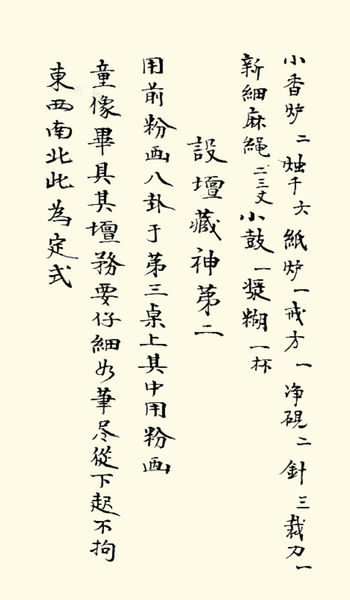 小香炉二烛千六紙炉一戒方一净硯二針三裁刀一
新細麻繩二三丈小鼓一漿糊一杯
設壇藏神第二
用前粉画八卦于第三桌上其中用粉画
童像畢具其壇務要仔細如筆尽從下起不拘
東西南北此為定式